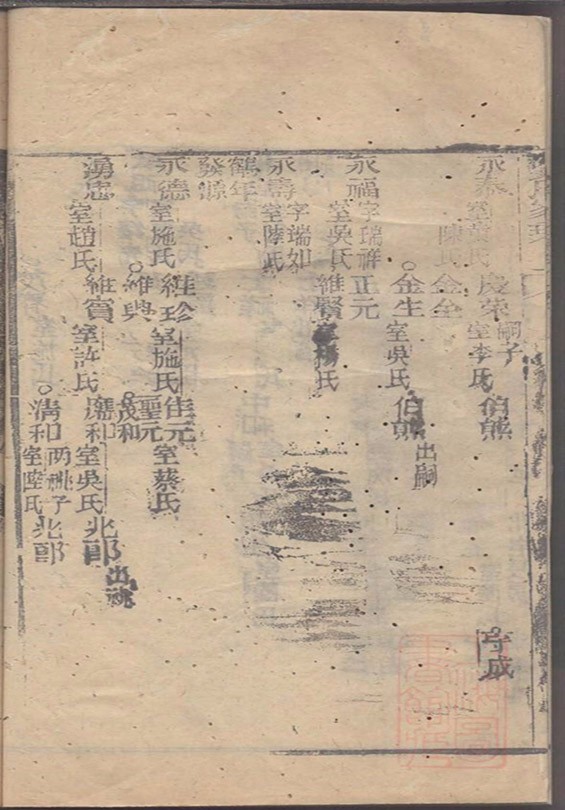 永泰 室黃氏 慶榮 嗣子 室李氏 伯熊
陳氏 金全
金生 室吳氏 伯熊 出嗣
守成
永福 字瑞祥 室吳氏 正元
維賢 室楊氏
永壽 字瑞如 室陸氏
鶴年
發源
永德 室施氏 維珍 室施氏 佳元 室蔡氏
維興 聖元
茂和
湧忠 室趙氏 維賓 室許氏 室吳氏 兆郎 出祧
清和 两祧子 室陸氏 兆郎